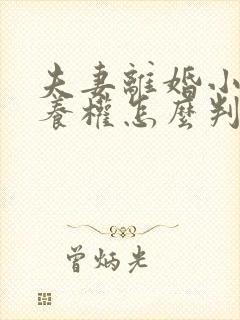 夫妻離婚小
養權怎麼判
曾炳光